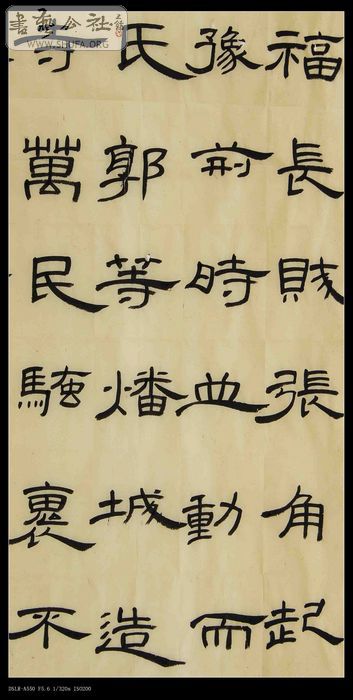 福長賊張角起
豫荊時並動而
氏郭等燔城造
寺萬民騷裹不
書藝公社
WWW.SHUFA.ORG
DSLR-A550 F5.6 1/320s ISO200